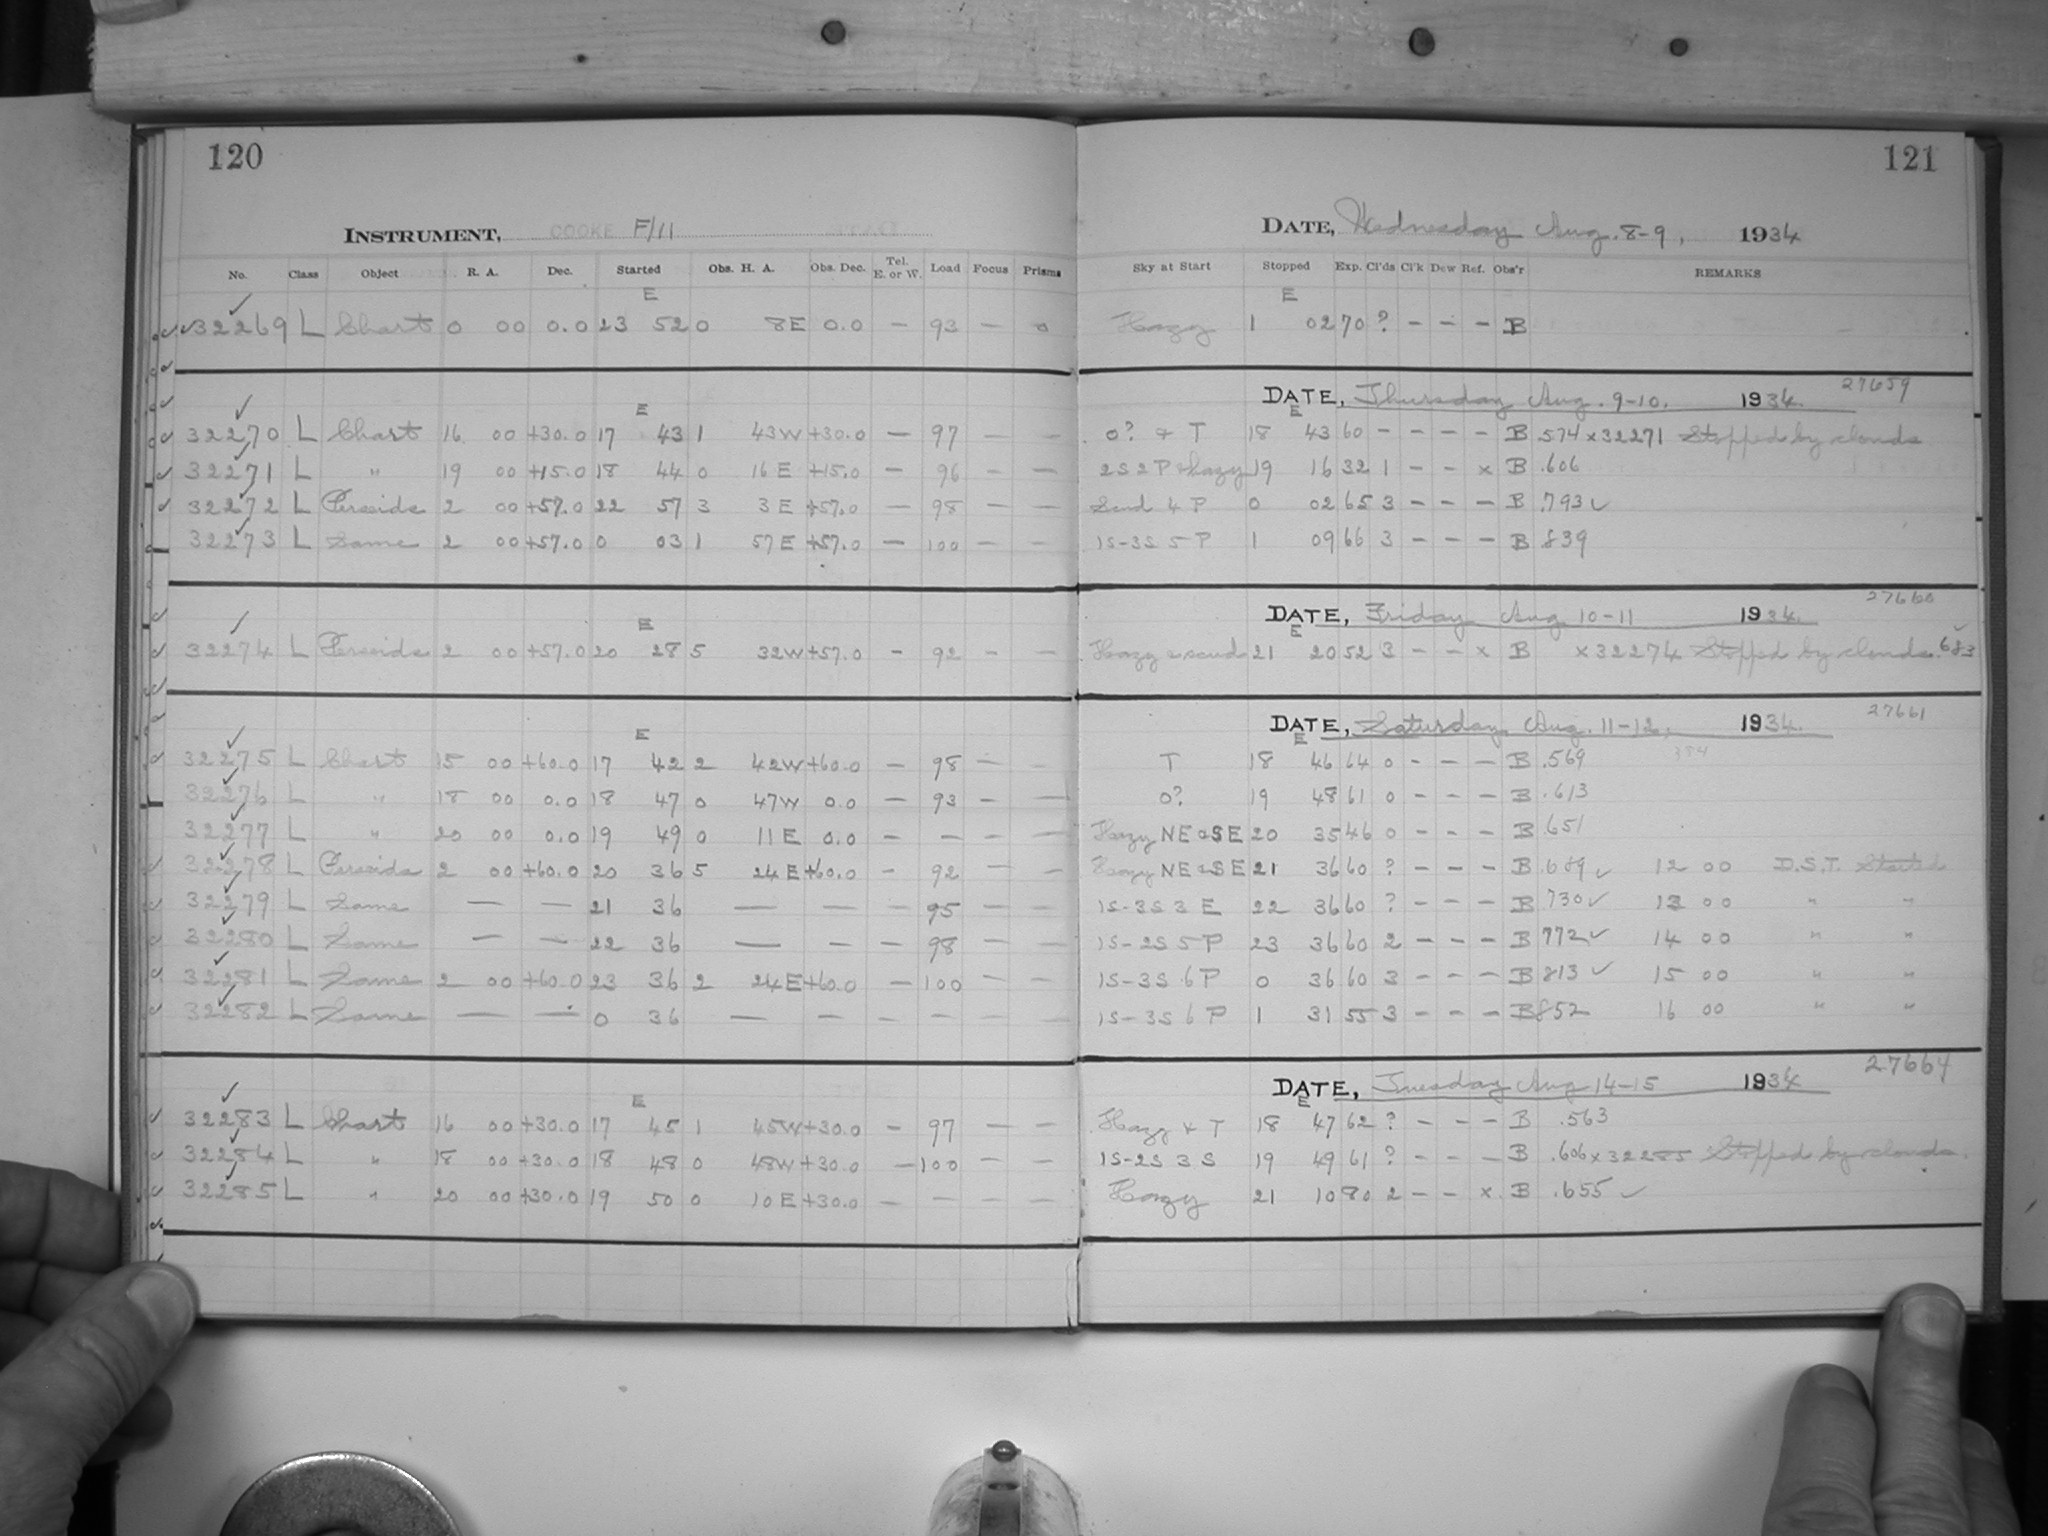 120
INSTRUMENT, COOKE F/11
No. Class Object R. A. Dec. Started Obs. H. A. Obs. Dec. Tel. E. or W. Load Focus Prisms
E
32269 L Chart 0 00 0.0 23 52 0 8E 0.0 — 93 — 0
E
32270 L Chart 16 00 +30.0 17 43 1 43W +30.0 — 97 — —
32271 L " 19 00 +15.0 18 44 0 16E +15.0 — 96 — —
32272 L Perseids 2 00 +57.0 22 57 3 3E +57.0 — 98 — —
32273 L Same 2 00 +57.0 0 03 1 57E +57.0 — 100 — —
E
32274 L Perseids 2 00 +57.0 20 28 5 32W +57.0 — 92 — —
E
32275 L Chart 15 00 +60.0 17 42 2 42W +60.0 — 98 — —
32276 L " 18 00 0.0 18 47 0 47W 0.0 — 93 — —
32277 L " 20 00 0.0 19 49 0 11E 0.0 — — — —
32278 L Perseids 2 00 +60.0 20 36 5 24E +60.0 — 92 — —
32279 L Same — — 21 36 — — — 95 — —
32280 L Same — — 22 36 — — — 98 — —
32281 L Same 2 00 +60.0 23 36 2 24E +60.0 — 100 — —
32282 L Same — — 0 36 — — — — — —
E
32283 L Chart 16 00 +30.0 17 45 1 45W +30.0 — 97 — —
32284 L " 18 00 +30.0 18 48 0 48W +30.0 — 100 — —
32285 L " 20 00 +30.0 19 50 0 10E +30.0 — — — —
121
DATE, Wednesday Aug. 8-9, 1934
Sky at Start Stopped Exp. Cl'ds Cl'k Dew Ref. Obs'r REMARKS
E
Hazy 1 02 70 ? — — — B
27659
DATE, Thursday Aug. 9-10. 1934.
E
0? & T 18 43 60 — — — — B .574 x32271 Stopped by clouds
2S 2P & hazy 19 16 32 1 — — x B .606
Scud 4 P 0 02 65 3 — — — B .793 ✓
1S-3S 5 P 1 09 66 3 — — — B .839
27660
DATE, Friday Aug 10-11 1934.
E
Hazy & scud 21 20 52 3 — — x B x32274 Stopped by clouds .683
27661
DATE, Saturday Aug. 11-12, 1934.
E
T 18 46 64 0 — — — B .569
0? 19 48 61 0 — — — B .613
Hazy NE & SE 20 35 46 0 — — — B .651
Hazy NE & SE 21 36 60 ? — — — B .689 ✓ 12 00 D.S.T. Started
1S-3S 3 E 22 36 60 ? — — — B .730 ✓ 13 00 " "
1S-2S 5 P 23 36 60 2 — — — B 772 ✓ 14 00 " "
1S-3S 6 P 0 36 60 3 — — — B 813 ✓ 15 00 " "
1S-3S 6 P 1 31 55 3 — — — B 852 16 00 " "
27664
DATE, Tuesday Aug 14-15 1934
E
Hazy & T 18 47 62 ? — — — B .563
1S-2S 3 S 19 49 61 ? — — — B .606 x32285 Stopped by clouds.
Hazy 21 10 80 2 — — x B .655 ✓